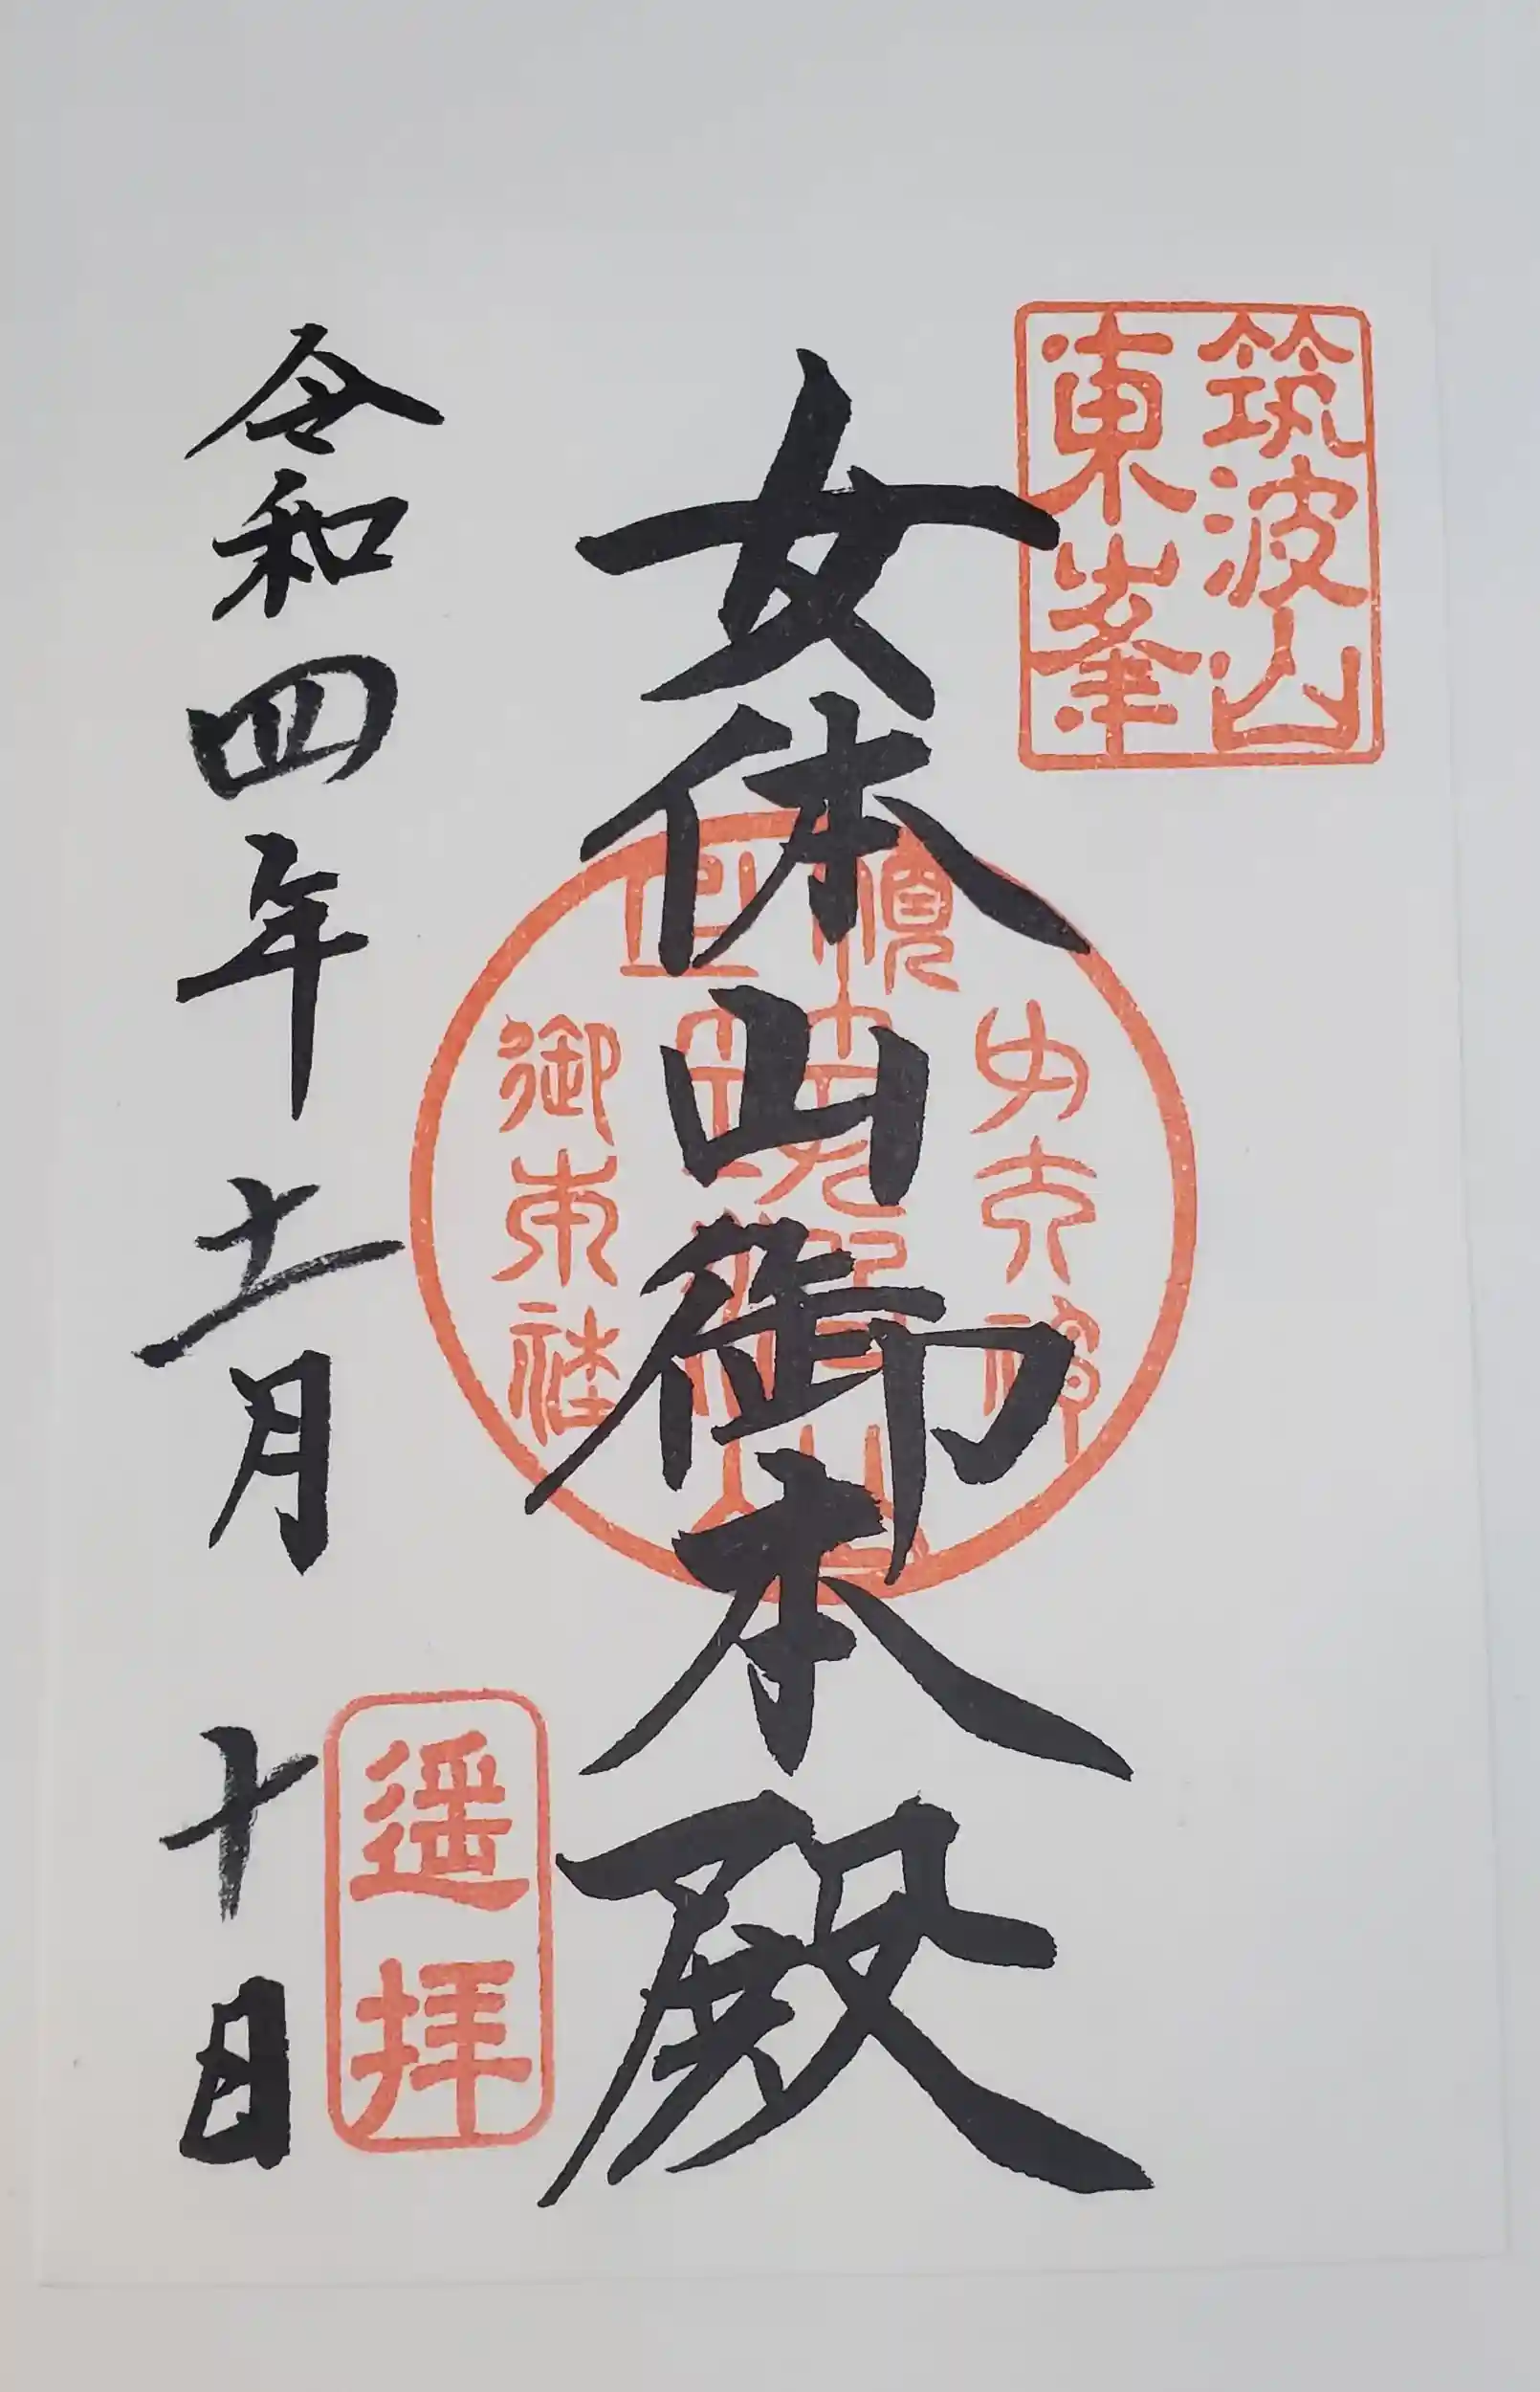 筑波山
東峯
女体山御本殿
遥拝
令和四年十一月十日